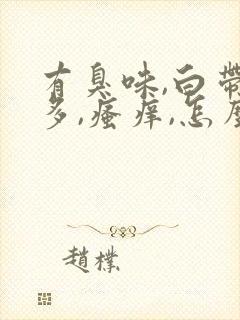 有臭味,白带
多,瘙痒,怎麼
趙樸